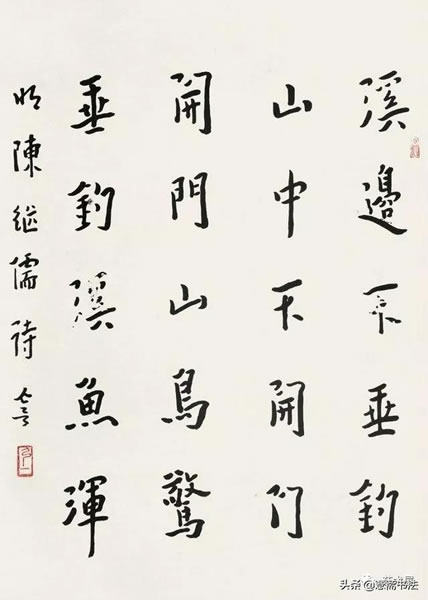 溪邊不垂釣
山中不開门
開門山鳥驚
垂釣溪魚渾
明陳继儒詩
头条 书法